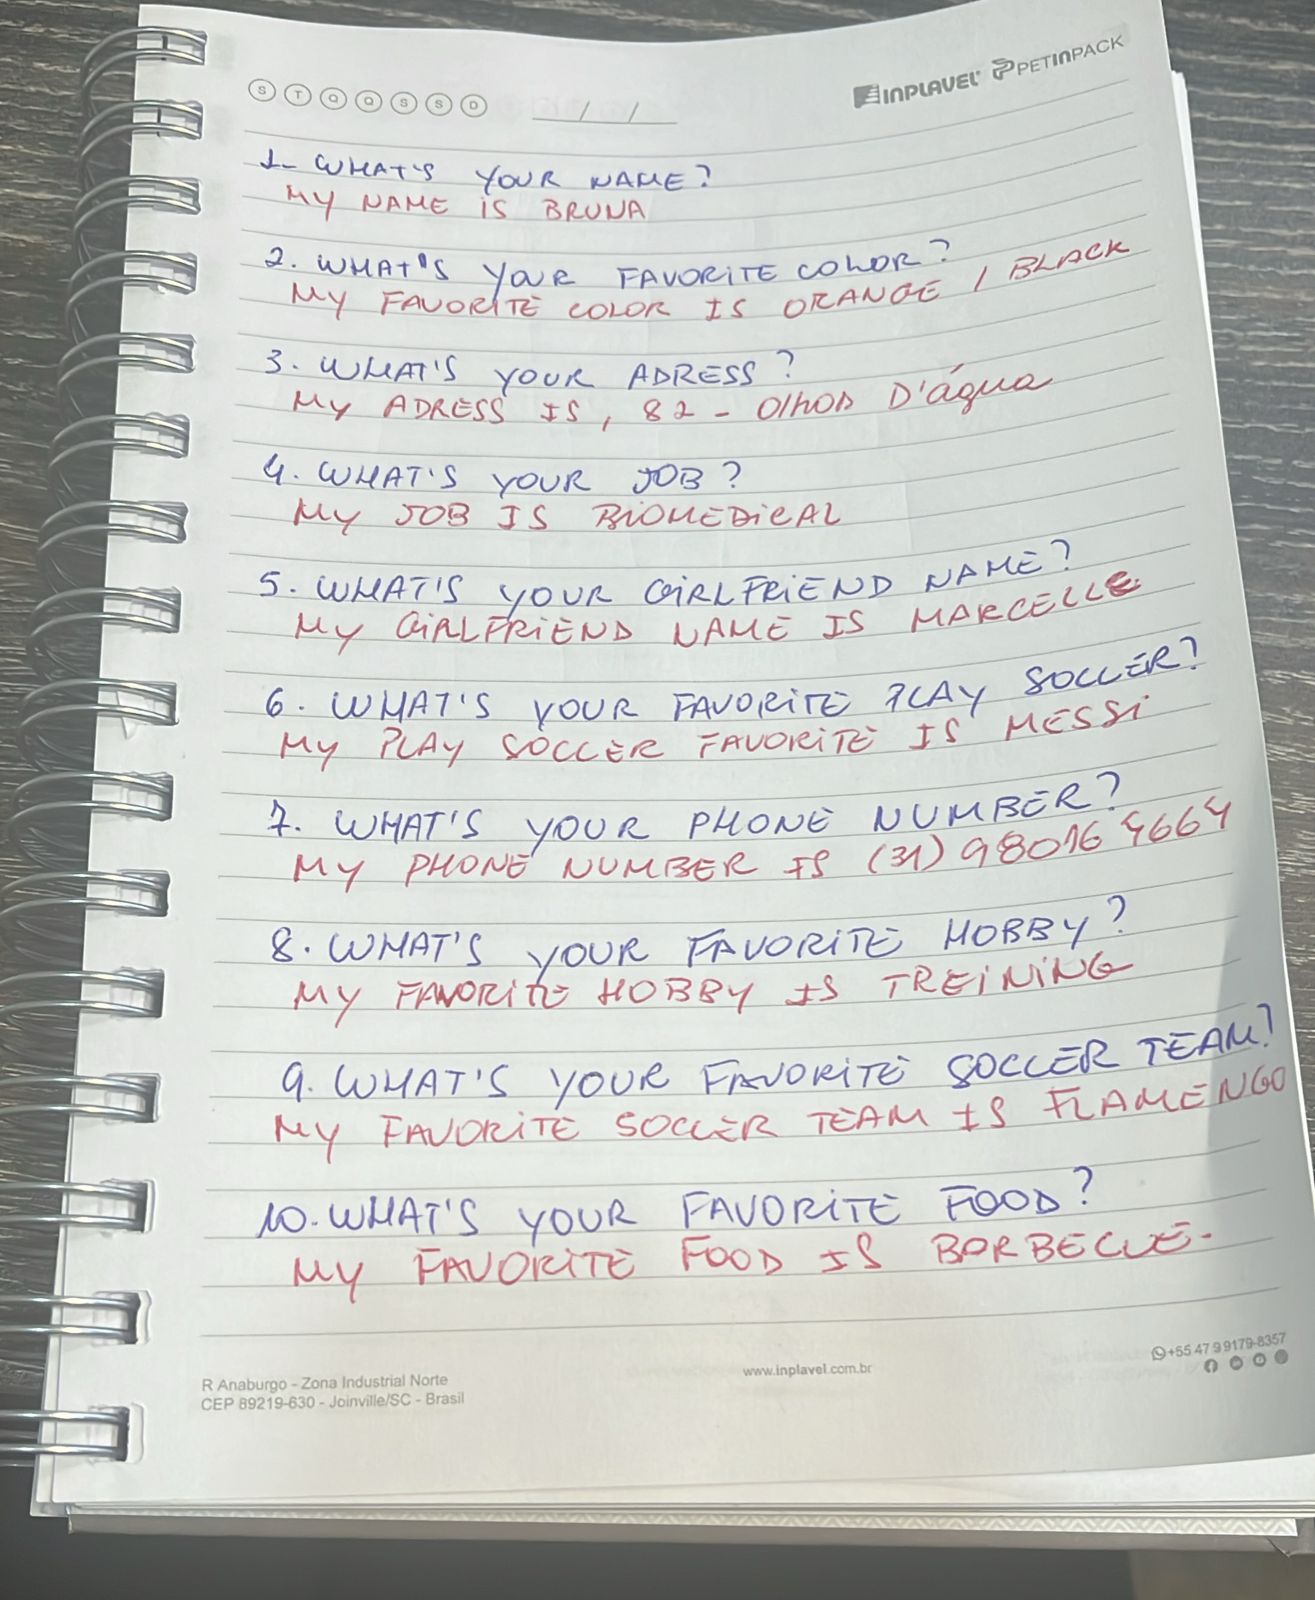 S T Q Q S S D / / INPLAVEL PETINPACK
1- WHAT'S YOUR NAME?
MY NAME IS BRUNA
2. WHAT'S YOUR FAVORITE COLOR?
MY FAVORITE COLOR IS ORANGE / BLACK
3. WHAT'S YOUR ADRESS?
MY ADRESS IS, 82 - Olhos D'água
4. WHAT'S YOUR JOB?
MY JOB IS BIOMEDICAL
5. WHAT'S YOUR GIRLFRIEND NAME?
MY GIRLFRIEND NAME IS MARCELLE
6. WHAT'S YOUR FAVORITE PLAY SOCCER?
MY PLAY SOCCER FAVORITE IS MESSI
7. WHAT'S YOUR PHONE NUMBER?
MY PHONE NUMBER IS (31) 98016 4664
8. WHAT'S YOUR FAVORITE HOBBY?
MY FAVORITE HOBBY IS TREINING
9. WHAT'S YOUR FAVORITE SOCCER TEAM?
MY FAVORITE SOCCER TEAM IS FLAMENGO
10. WHAT'S YOUR FAVORITE FOOD?
MY FAVORITE FOOD IS BORBECUE.
R Anaburgo - Zona Industrial Norte www.inplavel.com.br +55 47 9 9179-8357
CEP 89219-630 - Joinville/SC - Brasil